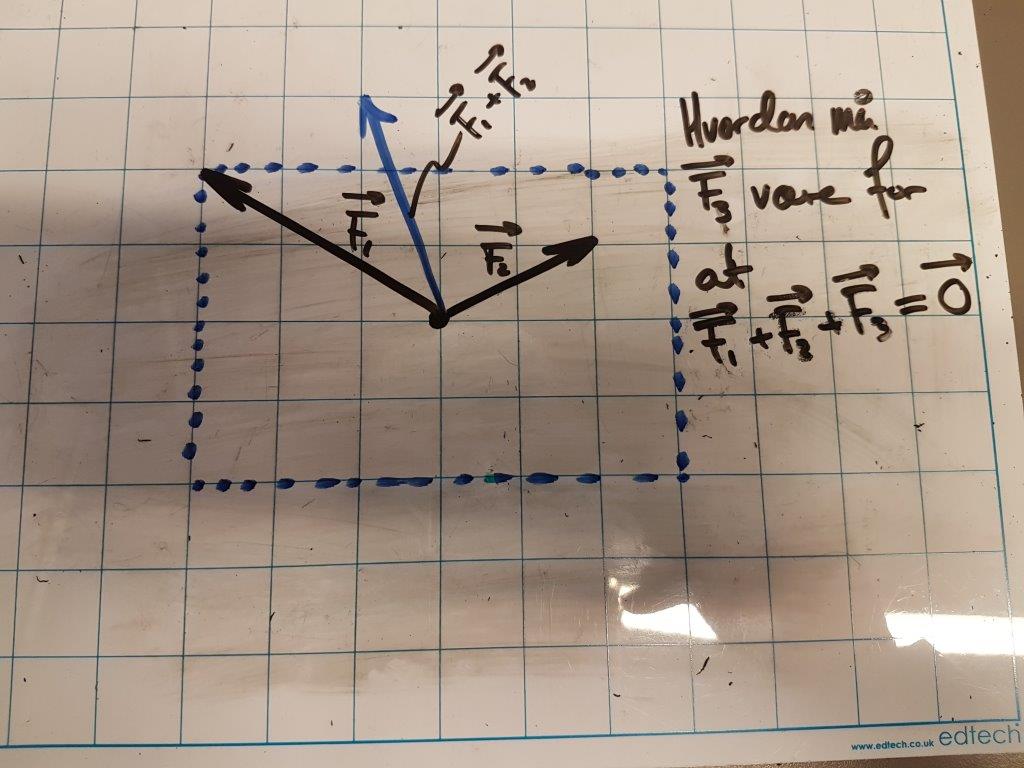 F₁ + F₂
Hvordan må
F₃ være for
at
F₁ + F₂ + F₃ = 0
F₁
F₂
www.edtech.co.uk edtech